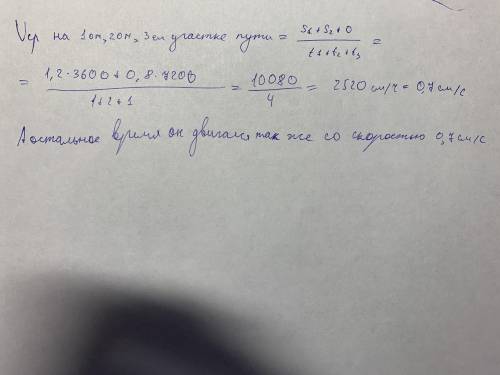 Vср на 1ом, 2ом, 3ем участке пути = S₁ + S₂ + 0 / t₁ + t₂ + t₃ =
= 1,2·3600 + 0,8·7200 / 1+2+1 = 10080 / 4 = 2520 см/ч = 0,7 см/с
А остальное время он двигался так же со скоростью 0,7 см/с